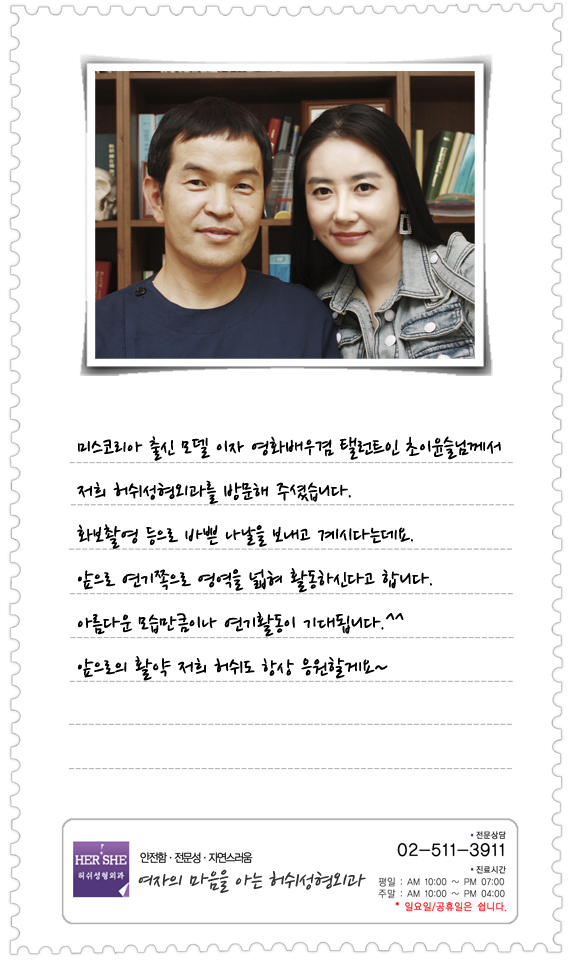 미스코리아 출신 모델 이자 영화배우겸 탤런트인 초이윤슬님께서
저희 허쉬성형외과를 방문해 주셨습니다.
화보촬영 등으로 바쁜 나날을 보내고 계시다는데요.
앞으로 연기쪽으로 영역을 넓혀 활동하신다고 합니다.
아름다운 모습만큼이나 연기활동이 기대됩니다.^^
앞으로의 활약 저희 허쉬도 항상 응원할게요~
HER SHE
허쉬성형외과
안전함 · 전문성 · 자연스러움
여자의 마음을 아는 허쉬성형외과
▪ 전문상담
02-511-3911
▪ 진료시간
평일 : AM 10:00 ~ PM 07:00
주말 : AM 10:00 ~ PM 04:00
* 일요일/공휴일은 쉽니다.